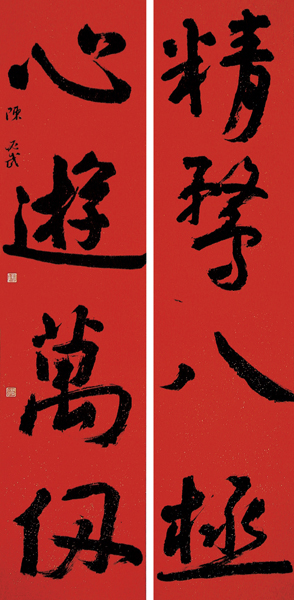 精騖八極
心遊萬仞
陳